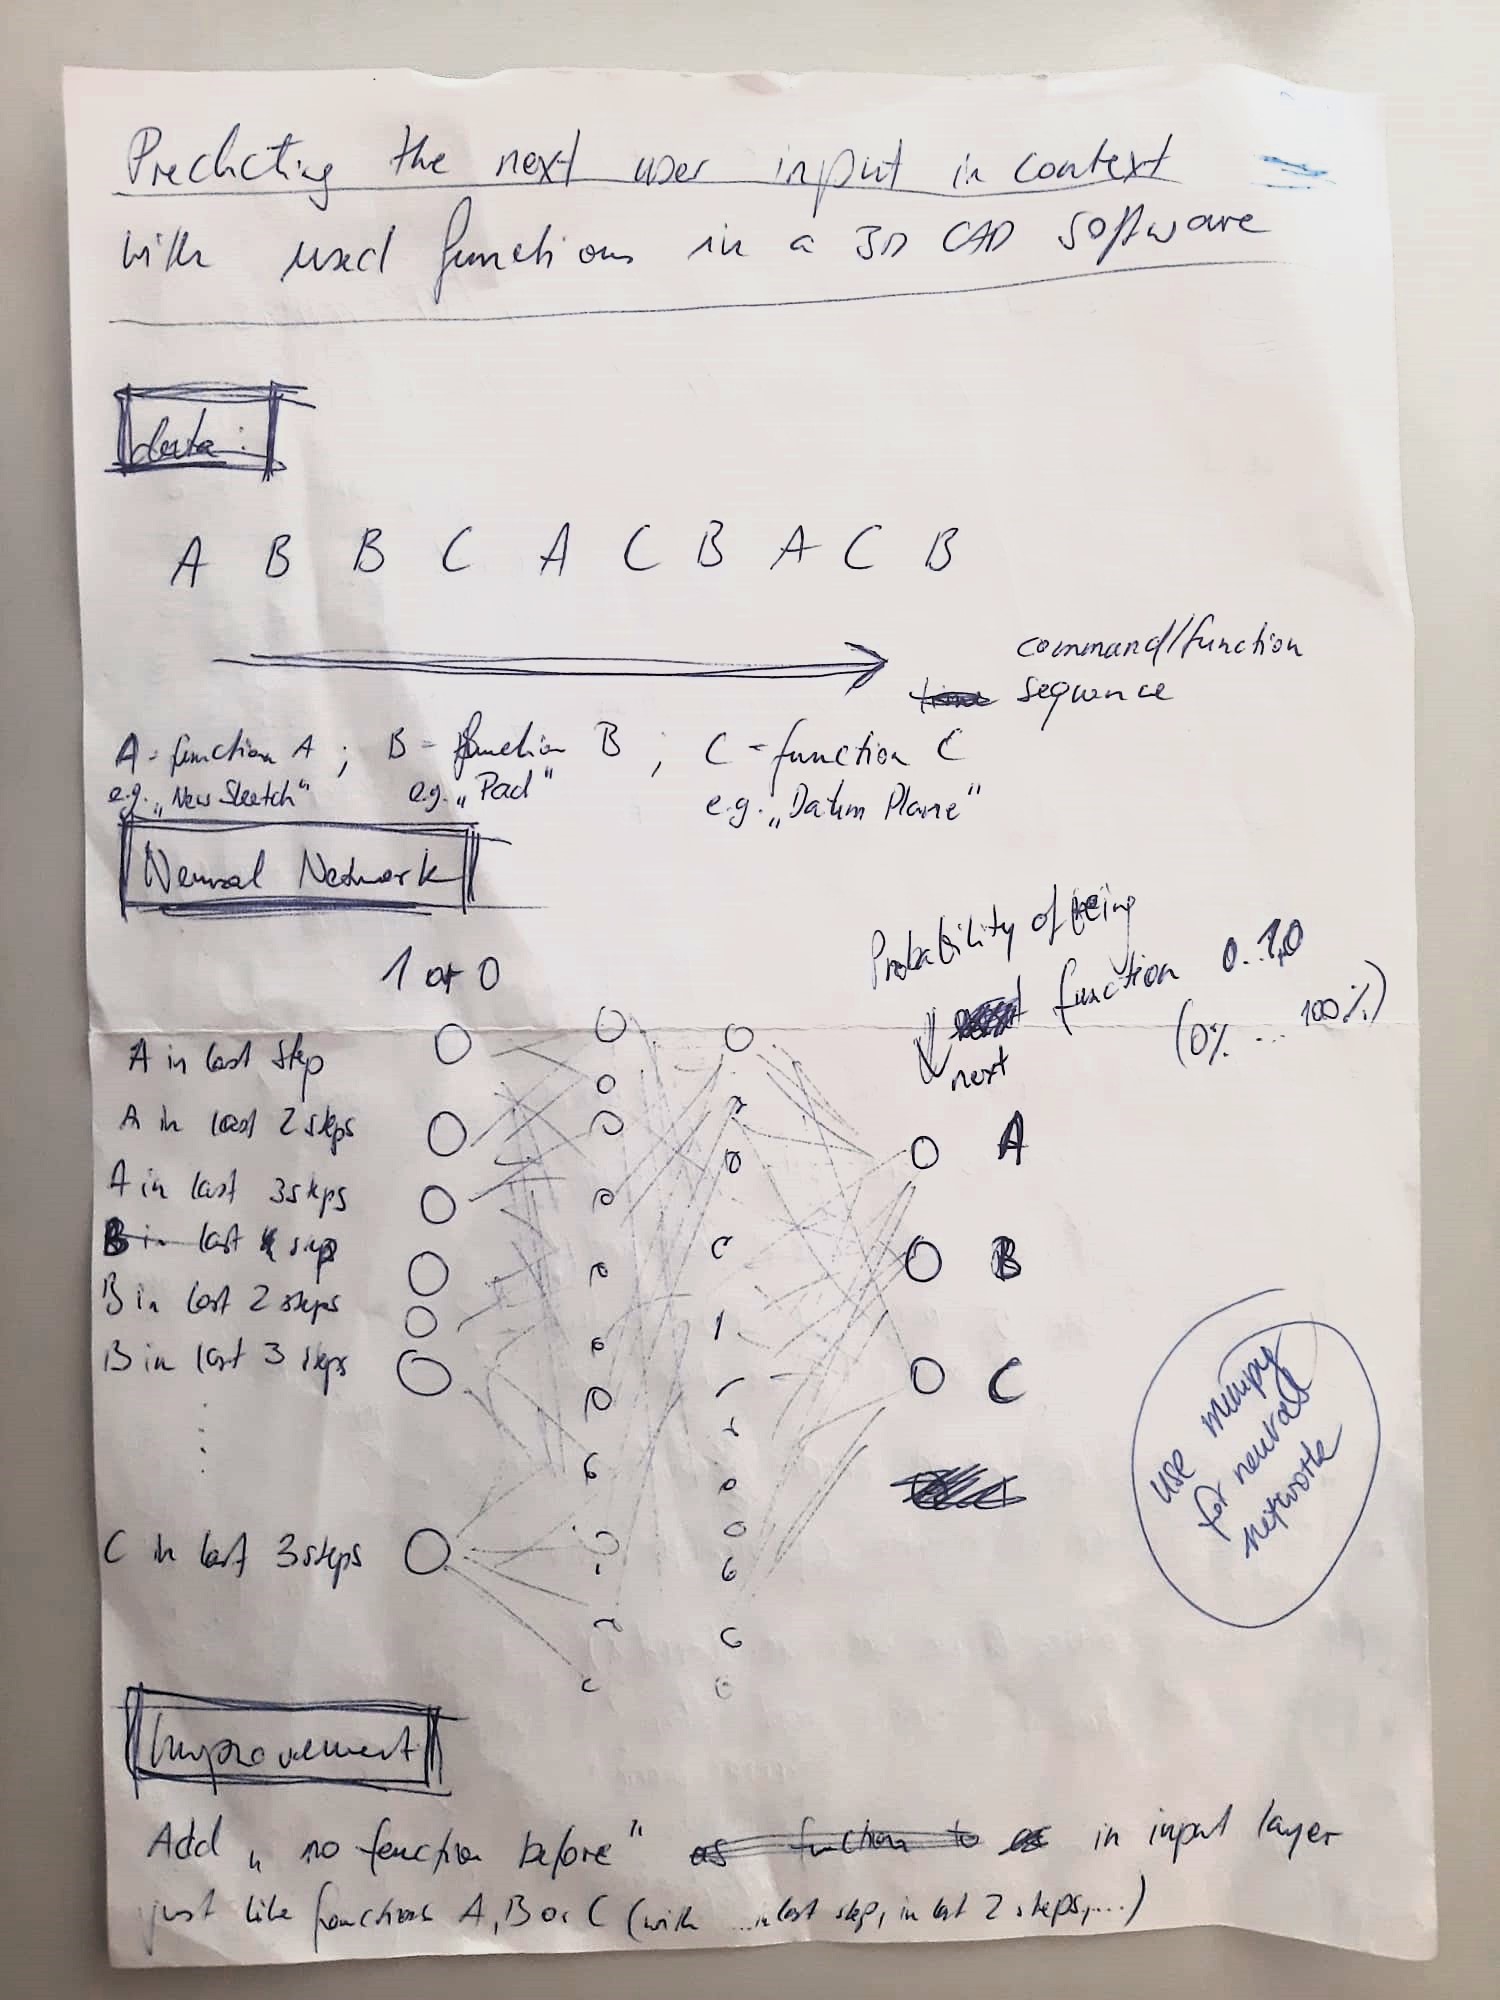 Predicting the next user input in context
with used functions in a 3D CAD software
data:
A B B C A C B A C B
command/function
time sequence
A = function A ; B = function B ; C = function C
e.g. „New Sketch" e.g. „Pad" e.g. „Datum Plane"
Neural Network
1 or 0
Probability of being
function 0..1,0
next
(0% ... 100%)
A in last step
A in last 2 steps
A in last 3 steps
B in last step
B in last 2 steps
B in last 3 steps
C in last 3 steps
A
B
C
use numpy
for neural
network
Improvement
Add „no function before" as function to as in input layer
just like functions A, B or C (with ...in last step, in last 2 steps,....)